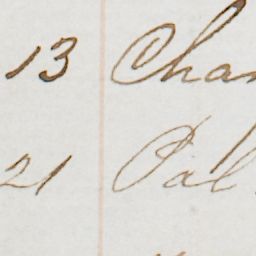 13 Chan
21 Pal